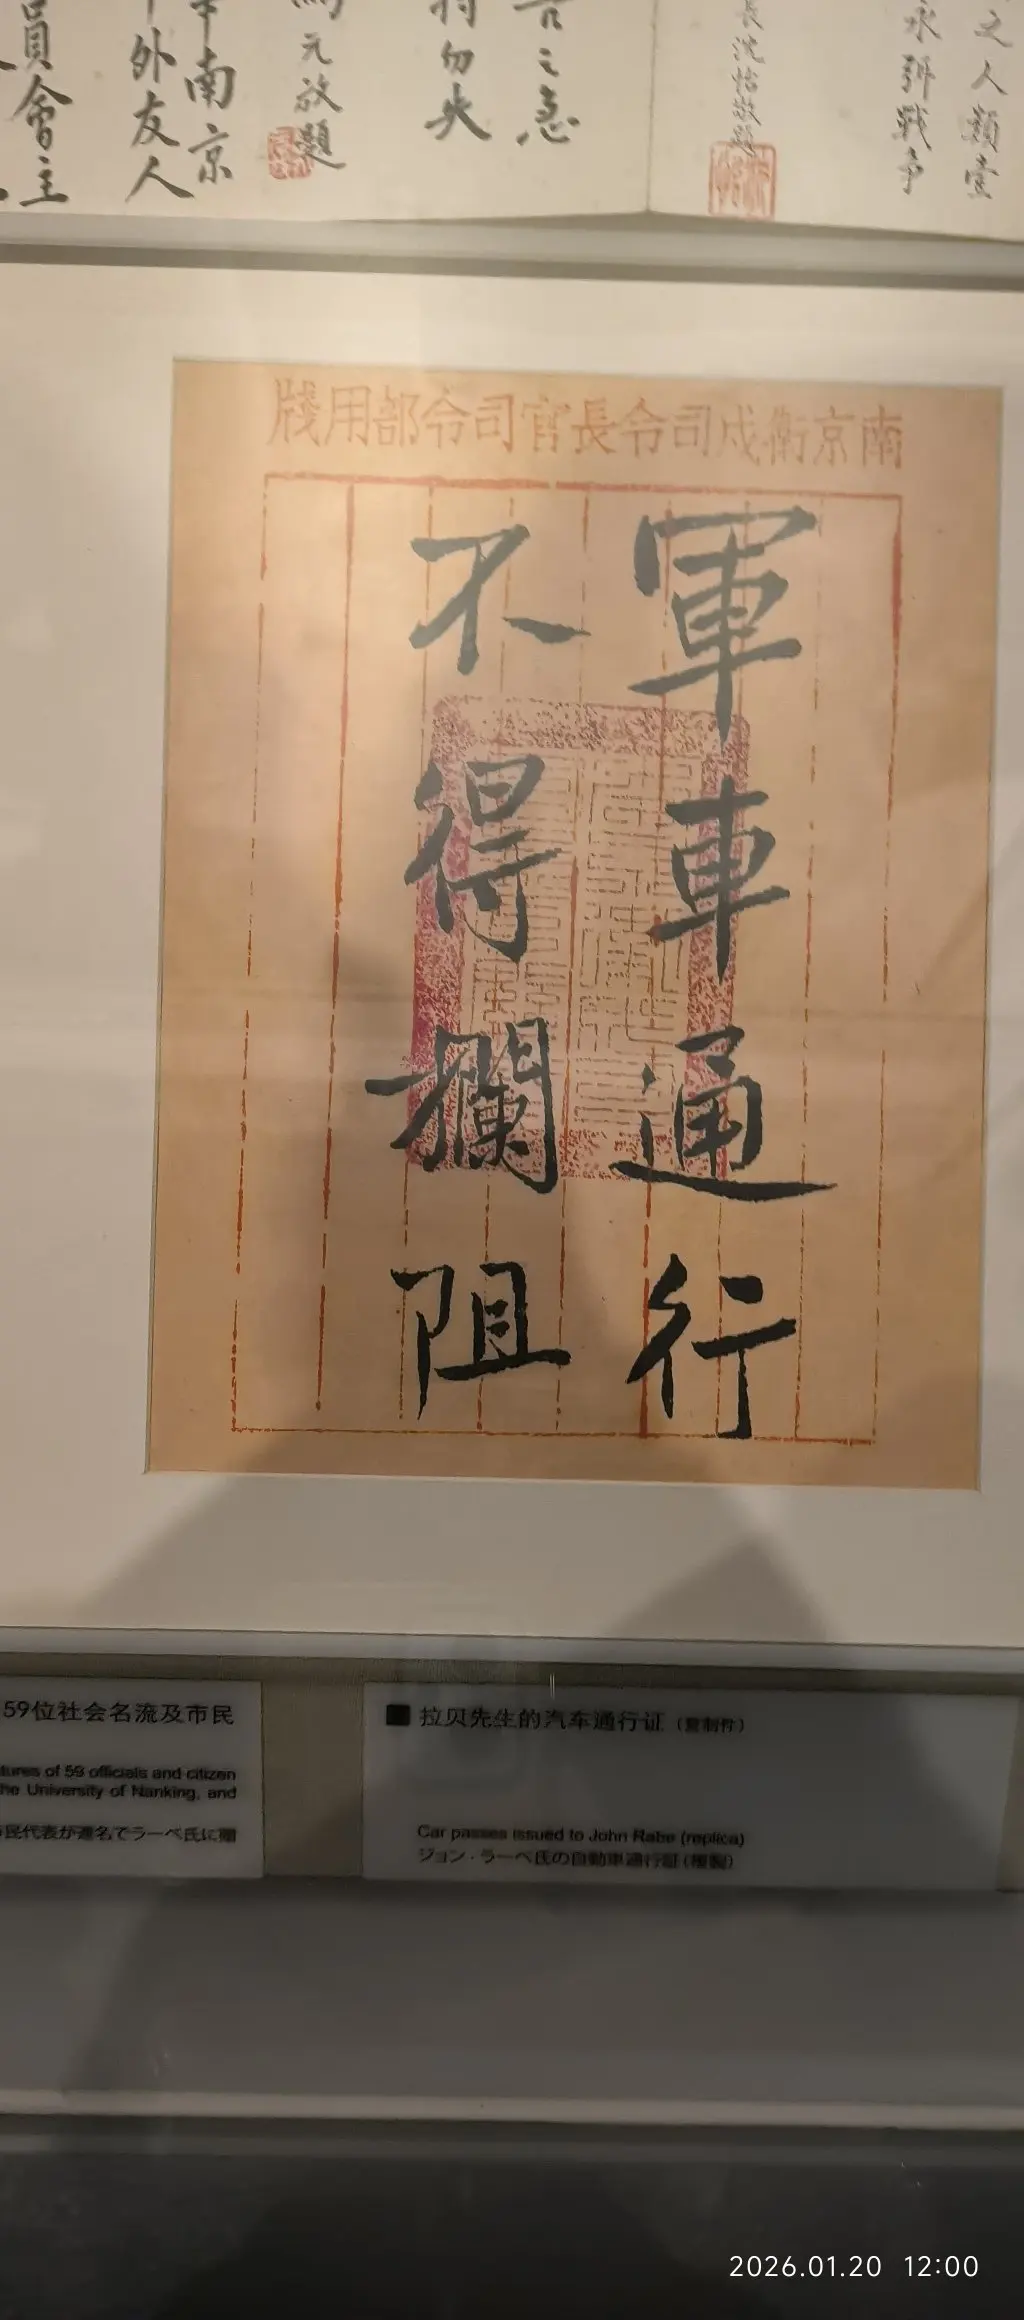 之人類臺
永弭戰爭
長沈怡敬題
言之急
勿失
元放題
南京
外友人
員會主
南京衛戍司令長官司令部用牋
軍車通行
不得攔阻
59位社会名流及市民
tures of 59 officials and citizen
he University of Nanking, and
民代表が連名でラーベ氏に贈
拉贝先生的汽车通行证（复制件）
Car passes issued to John Rabe (replica)
ジョン·ラーベ氏の自動車通行証（複製）
2026.01.20 12:00